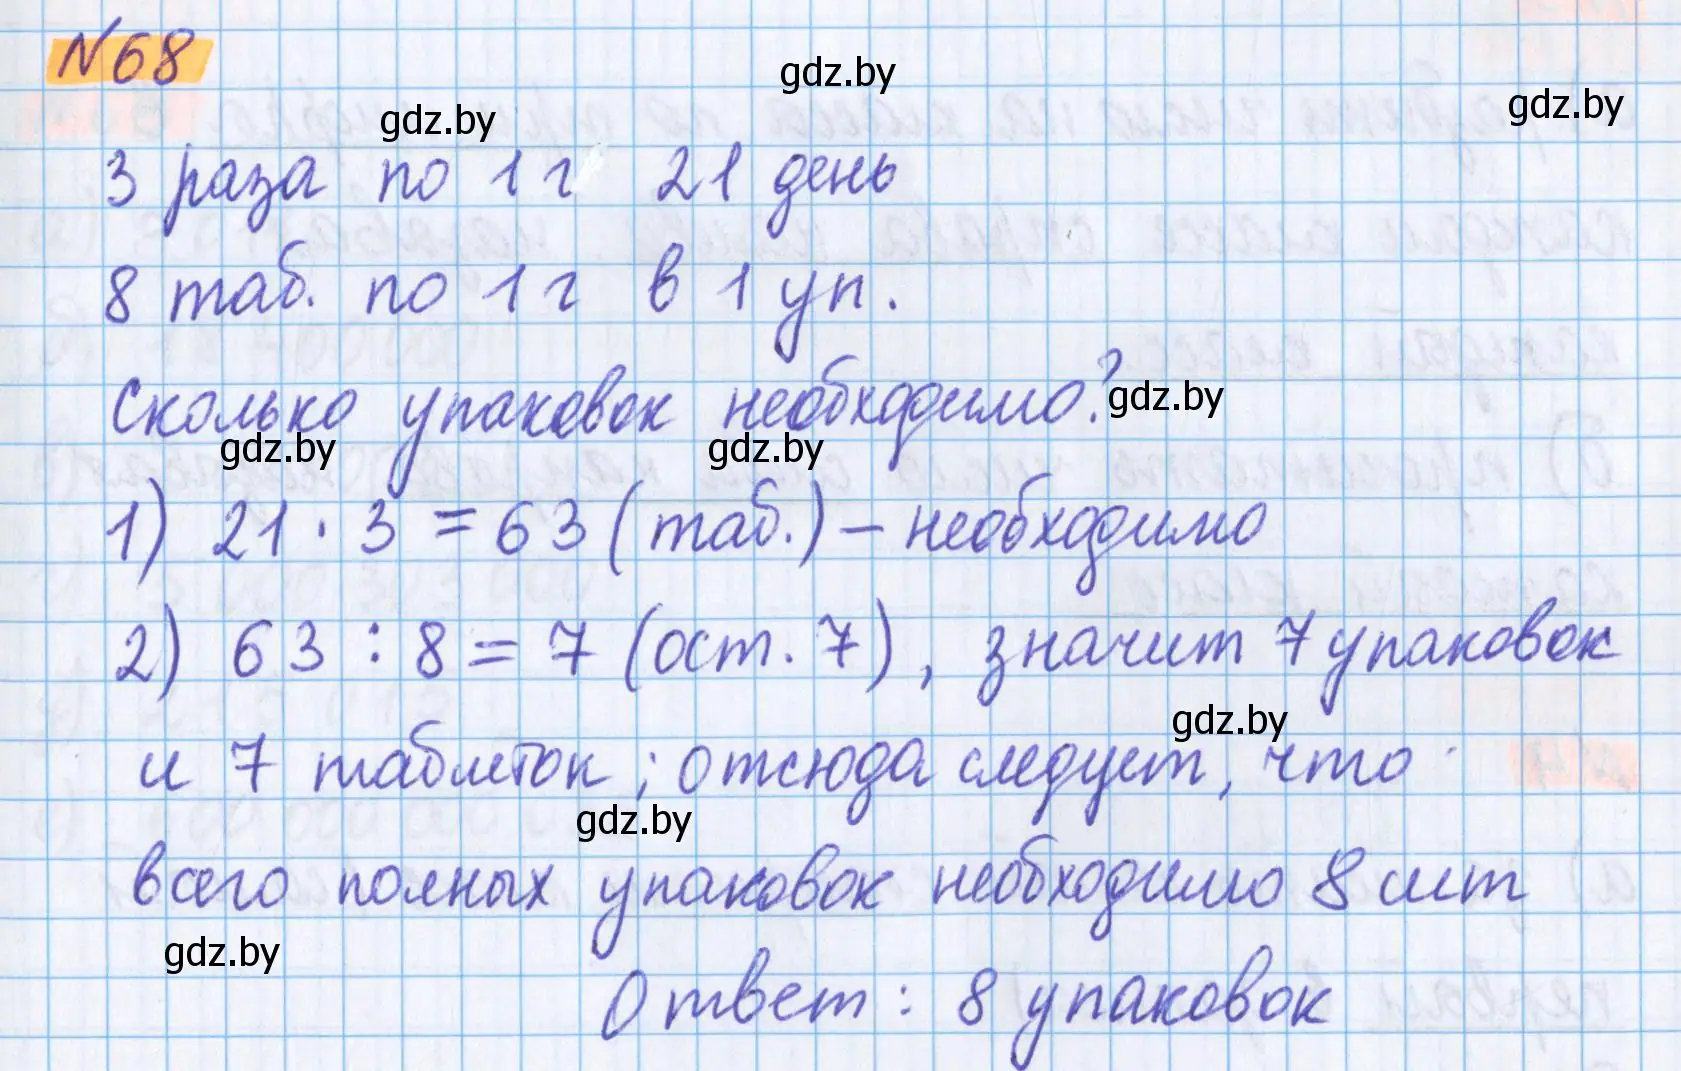 №68
gdz.by
gdz.by
gdz.by
3 раза по 1 г 21 день
8 таб. по 1 г в 1 уп.
Сколько упаковок необходимо?
gdz.by
gdz.by
gdz.by
1) 21 · 3 = 63 (таб.) – необходимо
2) 63 : 8 = 7 (ост. 7), значит 7 упаковок
gdz.by
и 7 таблеток; отсюда следует, что
gdz.by
всего полных упаковок необходимо 8 шт
gdz.by
Ответ: 8 упаковок